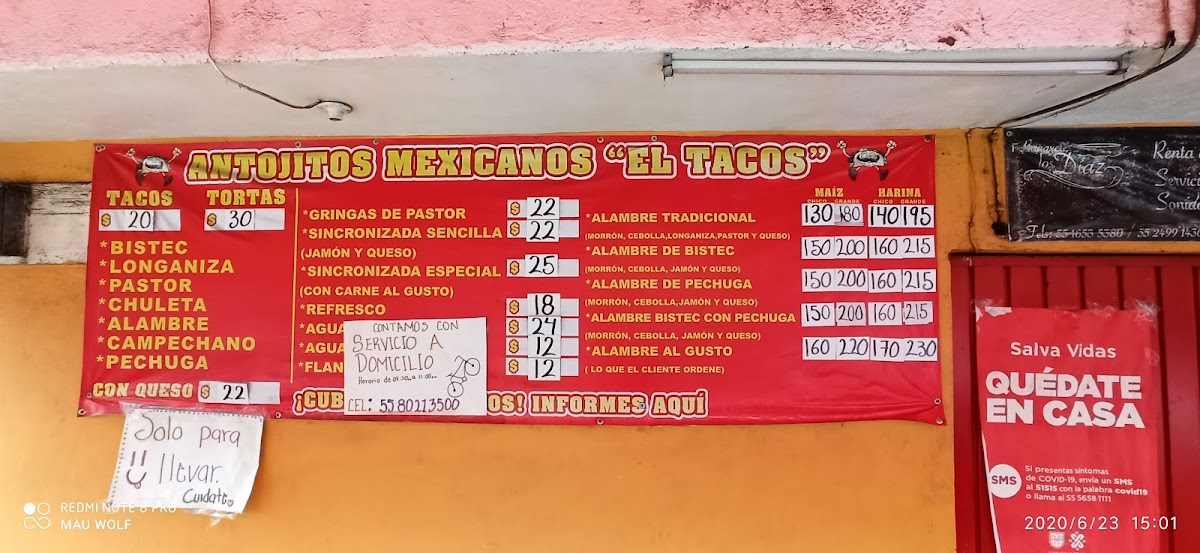 ANTOJITOS MEXICANOS "EL TACOS"
TACOS
$ 20
TORTAS
$ 30
*BISTEC
*LONGANIZA
*PASTOR
*CHULETA
*ALAMBRE
*CAMPECHANO
*PECHUGA
CON QUESO $ 22
*GRINGAS DE PASTOR $ 22
*SINCRONIZADA SENCILLA $ 22
(JAMÓN Y QUESO)
*SINCRONIZADA ESPECIAL $ 25
(CON CARNE AL GUSTO)
*REFRESCO $ 18
*AGUA $ 24
*AGUA $ 12
*FLAN $ 12
MAÍZ HARINA
CHICO GRANDE CHICO GRANDE
*ALAMBRE TRADICIONAL 130 180 140 195
(MORRÓN, CEBOLLA,LONGANIZA,PASTOR Y QUESO)
*ALAMBRE DE BISTEC 150 200 160 215
(MORRÓN, CEBOLLA, JAMÓN Y QUESO)
*ALAMBRE DE PECHUGA 150 200 160 215
(MORRÓN, CEBOLLA,JAMÓN Y QUESO)
*ALAMBRE BISTEC CON PECHUGA 150 200 160 215
(MORRÓN, CEBOLLA, JAMÓN Y QUESO)
*ALAMBRE AL GUSTO 160 220 170 230
( LO QUE EL CLIENTE ORDENE)
¡CUB OS! INFORMES AQUÍ
CONTAMOS CON
SERVICIO A
DOMICILIO
Horario de
CEL: 5580213500
Solo para
llevar.
Cuidate
los Díaz
Renta
Servici
Sonido
Salva Vidas
QUÉDATE
EN CASA
SMS
Si presentas síntomas
de COVID-19, envía un SMS
al 51515 con la palabra covid19
o llama al 55 5658 1111
REDMI NOTE 8 PRO
MAU WOLF
2020/6/23 15:01